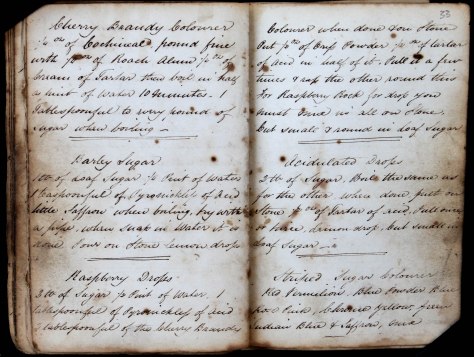 Cherry Brandy Colourer
¼ oz of Cochineal pound fine
with ½ oz of Roach Alum ½ oz of
Cream of Tartar then boil in half
a pint of Water 10 minutes. 1
Tablespoonful to every pound of
Sugar when boiling
Barley Sugar
1 lb of Loaf Sugar ½ Pint of Water
1 Teaspoonful of of Acid
little Saffron when boiling, try with
a pipe when in Water it is
done Pour on Stone lemon drops
Raspberry Drops
2 lb of Sugar ½ Pint of Water, 1
tablespoonful of of Acid
tablespoonful of the Cherry Brandy
33
Colourer when done on Stone
Put ½ oz of Powder ½ oz of tartar
of acid in half of it. Pull it a few
times & the other round this
For Raspberry Rock for drop you
must in all on Stone,
Cut small & round in loaf Sugar
Acidulated Drops
2 lb of Sugar, Boil the same as
for the other when done put on
Stone ½ oz of Tartar of acid, Pull once
or twice, Lemon drop, but small in
loaf Sugar
Striped Sugar Colourer
Red Vermilion, Blue Powder Blue
Rose Pink, Chrome Yellow, green
Indian Blue & Saffron,